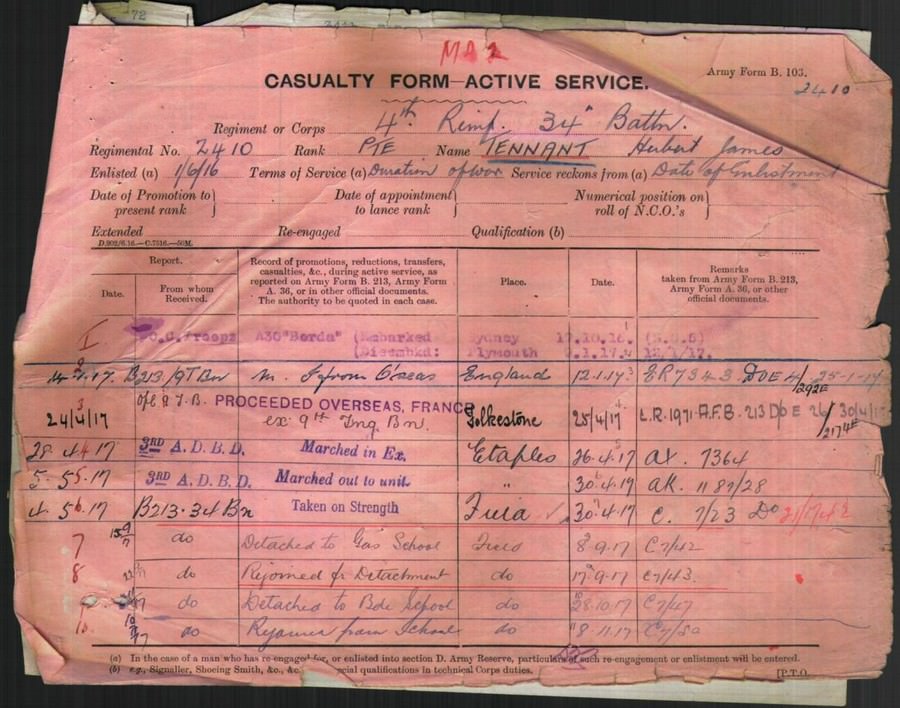 72
MD 2
Army Form B. 103.
CASUALTY FORM—ACTIVE SERVICE.
2410
Regiment or Corps 4th Rinf. 34" Battn.
Regimental No. 2410 Rank PTE Name TENNANT Hubert James
Enlisted (a) 1/6/16 Terms of Service (a) Duration of war Service reckons from (a) Date of Enlistment
Date of Promotion to present rank } Date of appointment to lance rank } Numerical position on roll of N.C.O.'s }
Extended Re-engaged Qualification (b)
D.902/6.16.—C.7516.—50M.
Report. Record of promotions, reductions, transfers, casualties, &c., during active service, as reported on Army Form B. 213, Army Form A. 36, or in other official documents. The authority to be quoted in each case. Place. Date. Remarks taken from Army Form B. 213, Army Form A. 36, or other official documents.
Date. From whom Received.
O.C. Troops A30 "Borda" (Embarked Sydney 17.10.16.
(Disembkd: Plymouth 9.1.17. 12/1/17.
.17. B213/9T Bn M. I from O'seas England 12.1.17 ER7343 DOE 4/292E 25-1-17
24/4/17 9 T.B. PROCEEDED OVERSEAS, FRANCE ex 9th Tng. Bn. Folkestone 25/4/17 L.R.1971 A.F.B. 213 DOE 26/2174E 30/4/17
28. 4 17 3RD A.D.B.D. Marched in Ex. Etaples 26.4.17 AX. 7364
5. 5.17 3RD A.D.B.D. Marched out to unit. " 30.4.17 AK. 1187/28
4. 5 17 B213.34 Bn Taken on Strength 30.4.17 C. 7/23 Do
7 do Detached to Gas School Field 8.9.17 C7/42
8 do Rejoined fr Detachment do 17.9.17 C7/43.
9 do Detached to Bde School do 28.10.17 C7/47
10 do Rejoined from School do 8.11.17 C7/50
(a) In the case of a man who has re-engaged for, or enlisted into section D. Army Reserve, particulars of such re-engagement or enlistment will be entered.
(b) e.g., Signaller, Shoeing Smith, &c., &c. special qualifications in technical Corps duties. [P.T.O.